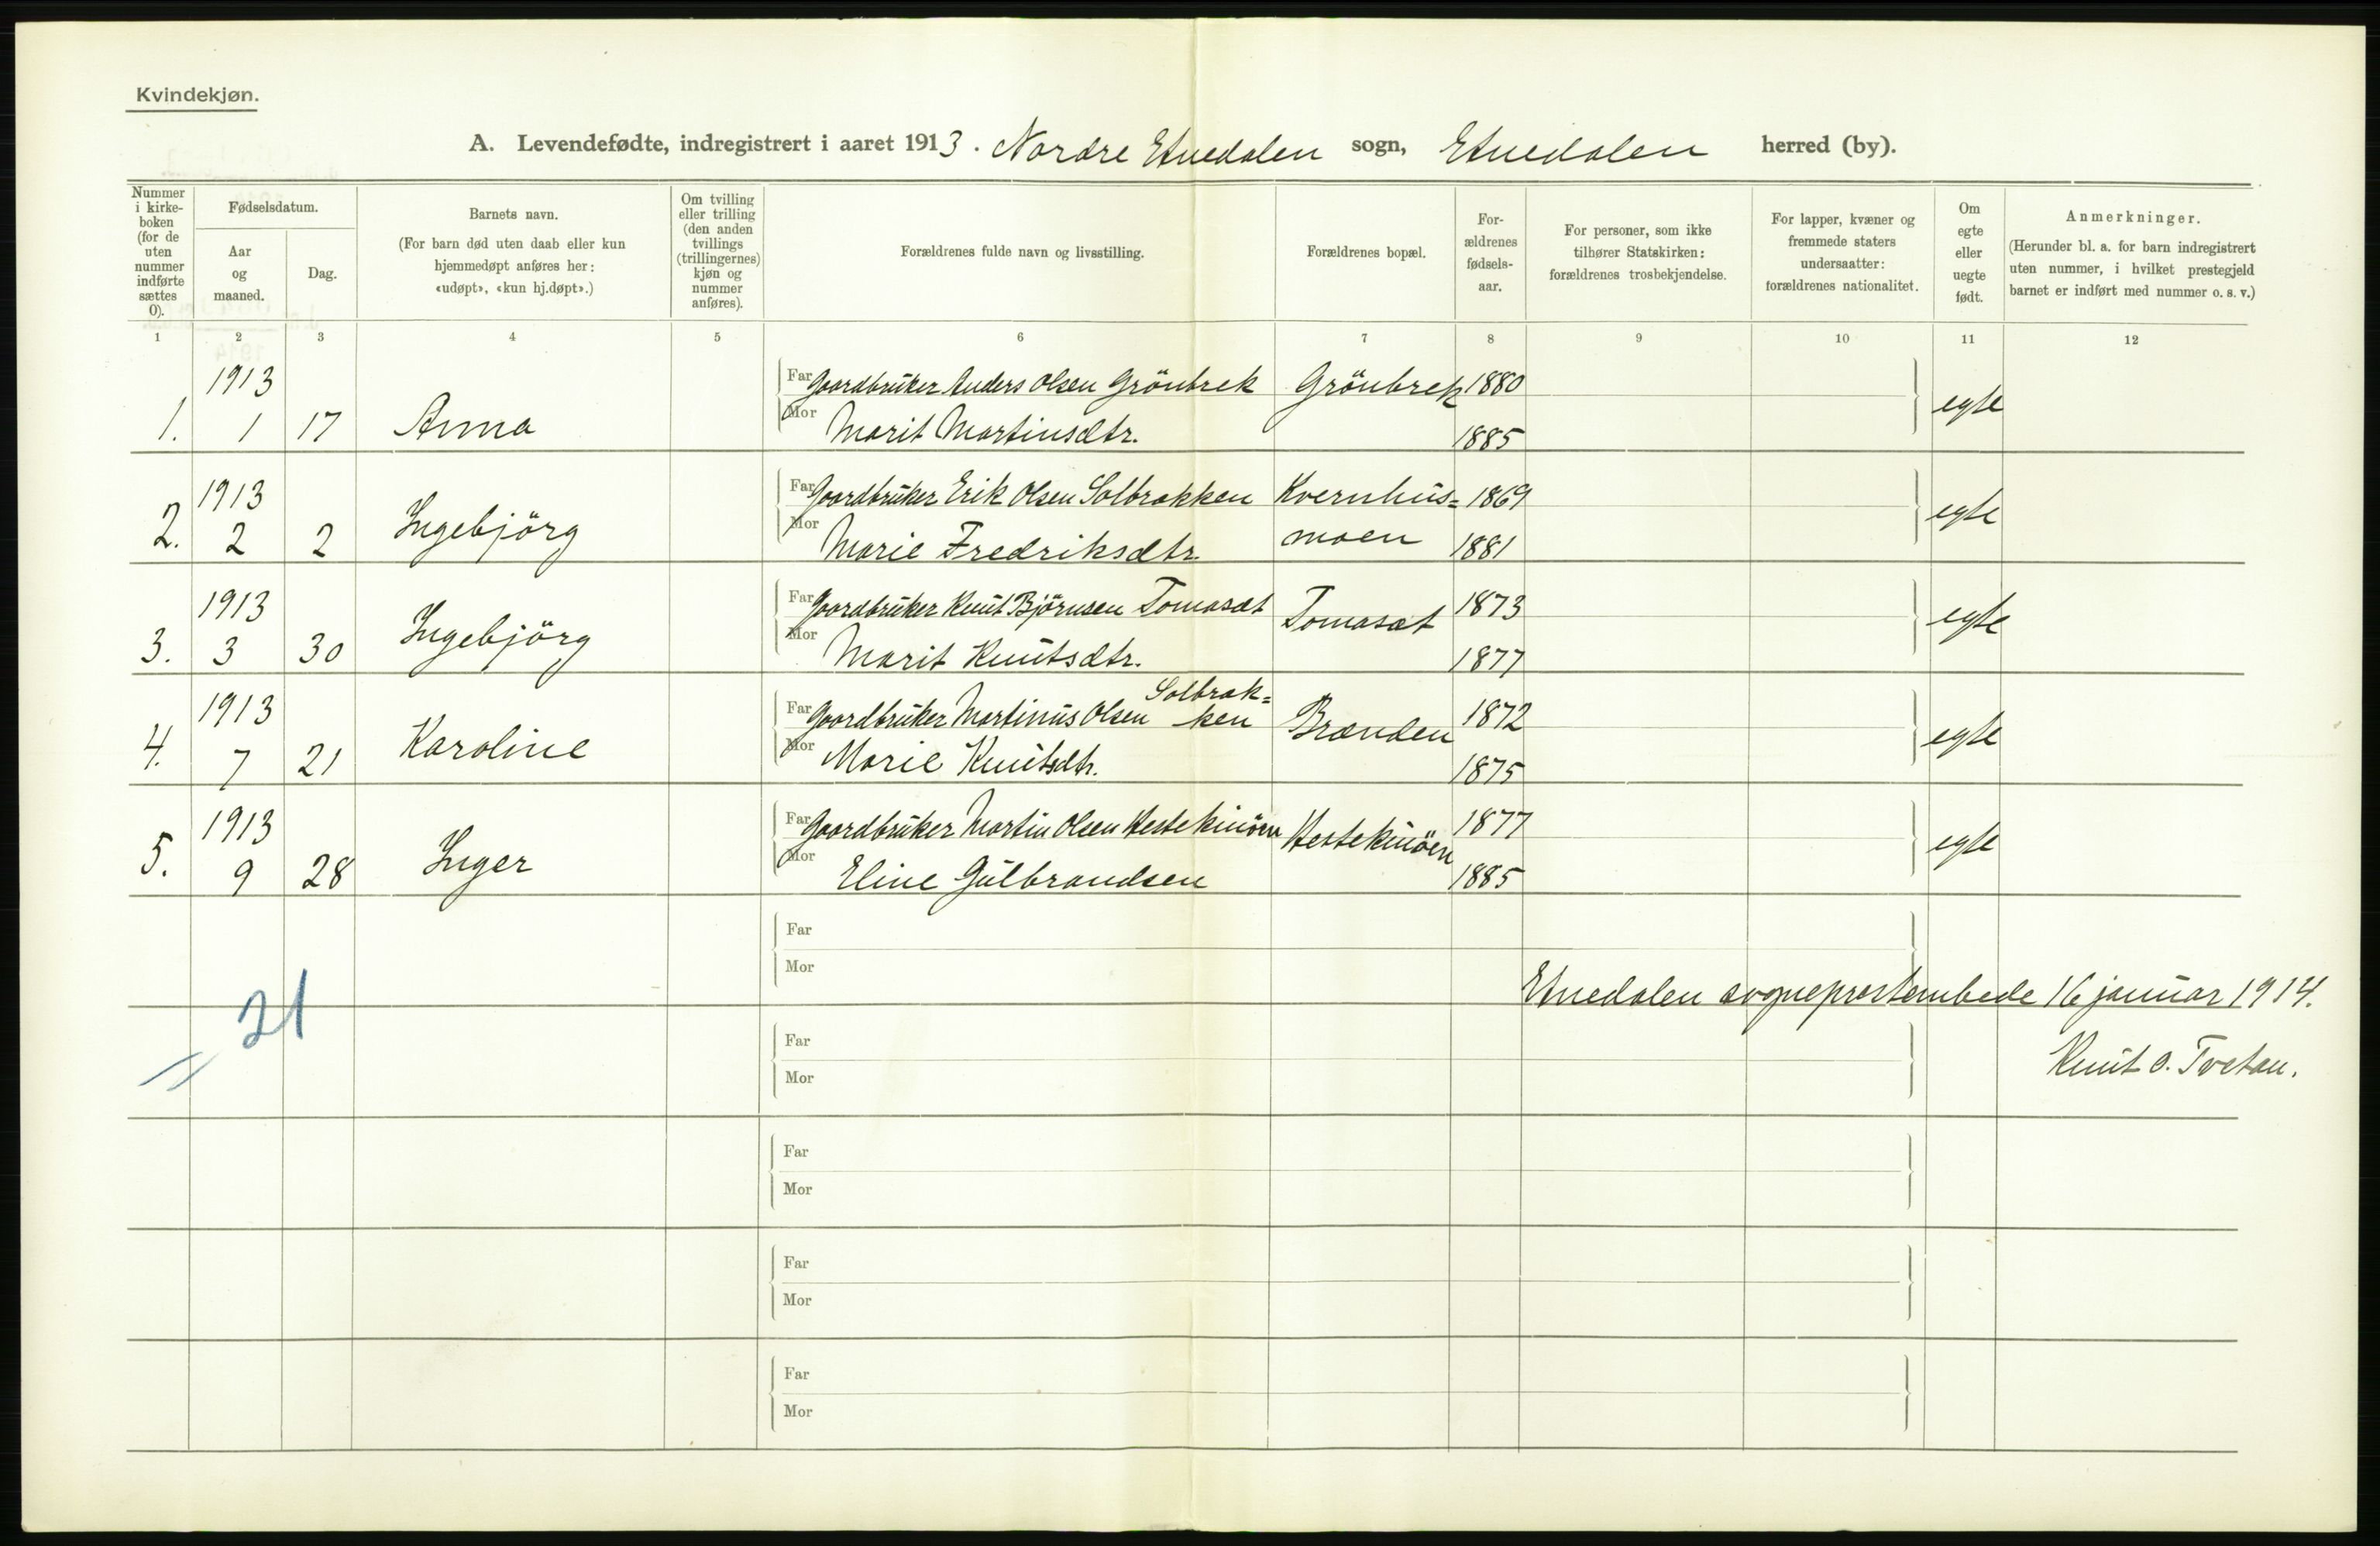 Kvindekjøn.
A. Levendefødte, indregistrert i aaret 1913. Nordre Etnedalen sogn, Etnedalen herred (by).
Nummer i kirke-boken (for de uten nummer indførte sættes 0).
Fødselsdatum.
Aar og maaned.
Dag.
Barnets navn.
(For barn død uten daab eller kun hjemmedøpt anføres her: «udøpt», «kun hj.døpt».)
Om tvilling eller trilling (den anden tvillings (trillingernes) kjøn og nummer anføres).
Forældrenes fulde navn og livsstilling.
Forældrenes bopæl.
For-ældrenes fødsels-aar.
For personer, som ikke tilhører Statskirken: forældrenes trosbekjendelse.
For lapper, kvæner og fremmede staters undersaatter: forældrenes nationalitet.
Om egte eller uegte født.
Anmerkninger.
(Herunder bl. a. for barn indregistrert uten nummer, i hvilket prestegjeld barnet er indført med nummer o. s. v.)
1 2 3 4 5 6 7 8 9 10 11 12
1913 Far Gaardbruker Anders Olsen Grönbrek Grönbrek 1880
1. 1 17 Anna Mor Marit Martinsdtr. 1885 egte
1913 Far Gaardbruker Erik Olsen Solbrækken Kvernhus= 1869
2. 2 2 Ingebjörg Mor Marie Fredriksdtr. moen 1881 egte
1913 Far Gaardbruker Knut Björnsen Tomasæt Tomasæt 1873
3. 3 30 Ingebjörg Mor Marit Knutsdtr. 1877 egte
Solbræk=
1913 Far Gaardbruker Martinus Olsen ken Brænden 1872
4. 7 21 Karoline Mor Marie Knutsdtr. 1875 egte
1913 Far Gaardbruker Martin Olsen Hestekinöen Hestekinöen 1877
5. 9 28 Inger Mor Eline Gulbrandsen 1885 egte
Far
Mor
Etnedalen sogneprestembede 16 januar 1914.
21
Far
Knut O. Tvetan.
Mor
Far
Mor
Far
Mor
Far
Mor